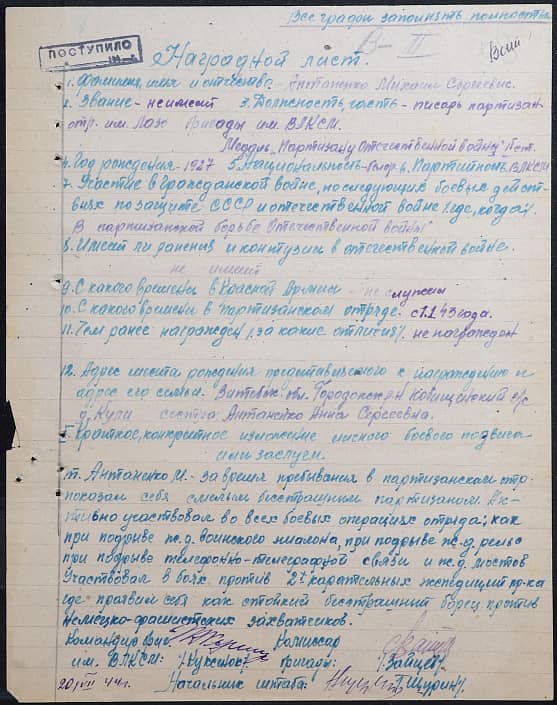 Все графы заполнять полностью
ПОСТУПИЛО
В-III
Наградной лист.
1. Фамилия, имя и отчество - Антаненко Михаил Сергеевис.
2. Звание - не имеет 3. Должность, часть - писарь партизан
отр. им. Лазо бригады им. ВЛКСМ.
Медаль "Партизану Отечественной войны"
4. Год рождения - 1927 5. Национальность - белор. 6. Партийность ВЛКСМ
7. Участие в гражданской войне, последующих боевых дейст-
виях по защите СССР и отечественной войне (где, когда)
В партизанской борьбе Отечественной войны
8. Имеет ли ранения и контузии в отечественной войне.
не имеет
9. С какого времени в Красной Армии - не служил
10. С какого времени в партизанском отряде. с 1.1.43 года.
11. Чем ранее награжден (за какие отличия). не награжден
12. Адрес места рождения представляемого к награждению и
адрес его семьи. Витебск. обл. Городокский с/с
д. Кули сестра Антаненко Анна Сергеевна.
Краткое, конкретное изложение личного боевого подвига
или заслуги.
т. Антаненко М. - за время пребывания в партизанском отр.
показал себя смелым бесстрашным партизаном. Ак-
тивно участвовал во всех боевых операциях отряда; как
при подрыве ж.д. воинского эшалона, при подрыве ж.д. рельс
при подрыве телефонно-телеграфной связи и ж.д. мостов
Участвовал в боях против 2х карательных экспедиций пр-ка
где проявил себя как стойкий бесстрашный борец против
немецко-фашистских захватчиков.
Командир бриг. Комиссар
им. ВЛКСМ: /Куксенок/ бригады: /Зайцев/
20/VII 44 г. Начальник штаба: /Тщурин/